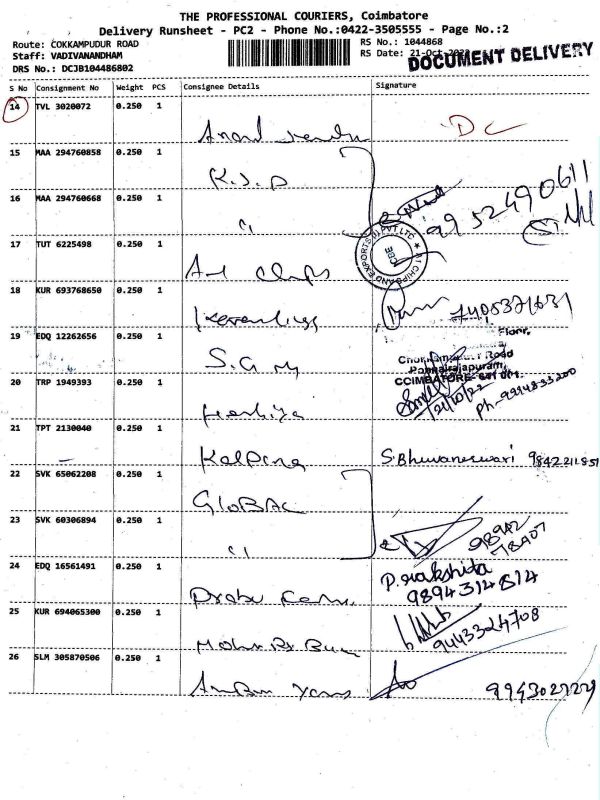 THE PROFESSIONAL COURIERS, Coimbatore
Delivery Runsheet - PC2 - Phone No.:0422-3505555 - Page No.:2
Route: COKKAMPUDUR ROAD
RS No.: 1044868
Staff: VADIVANANDHAM
RS Date: 21-Oct-
DOCUMENT DELIVERY
DRS No.: DCJB104486802
S No Consignment No Weight PCS Consignee Details Signature
14 TVL 3020072 0.250 1
Anand
DC
15 MAA 294760858 0.250 1
K.J.P
16 MAA 294760668 0.250 1
"
9952490611
17 TUT 6225498 0.250 1
A1 Chips
A1 CHIPS AND EXPORTS (I) PVT LTD
CBE
18 KUR 693768650 0.250 1
7405371631
19 EDQ 12262656 0.250 1
S.G.M
Floor,
Chokkampudur Road
Ponnairajapuram,
COIMBATORE-641 001.
20 TRP 1949393 0.250 1
21/10/22
Ph-9994833200
21 TPT 2130040 0.250 1
Kalpana
S.Bhuvaneswari 9842211851
22 SVK 65062208 0.250 1
GloBAL
23 SVK 60306894 0.250 1
"
98942
78907
24 EDQ 16561491 0.250 1
P.rakshita
9894314814
25 KUR 694065300 0.250 1
9443324708
26 SLM 305870506 0.250 1